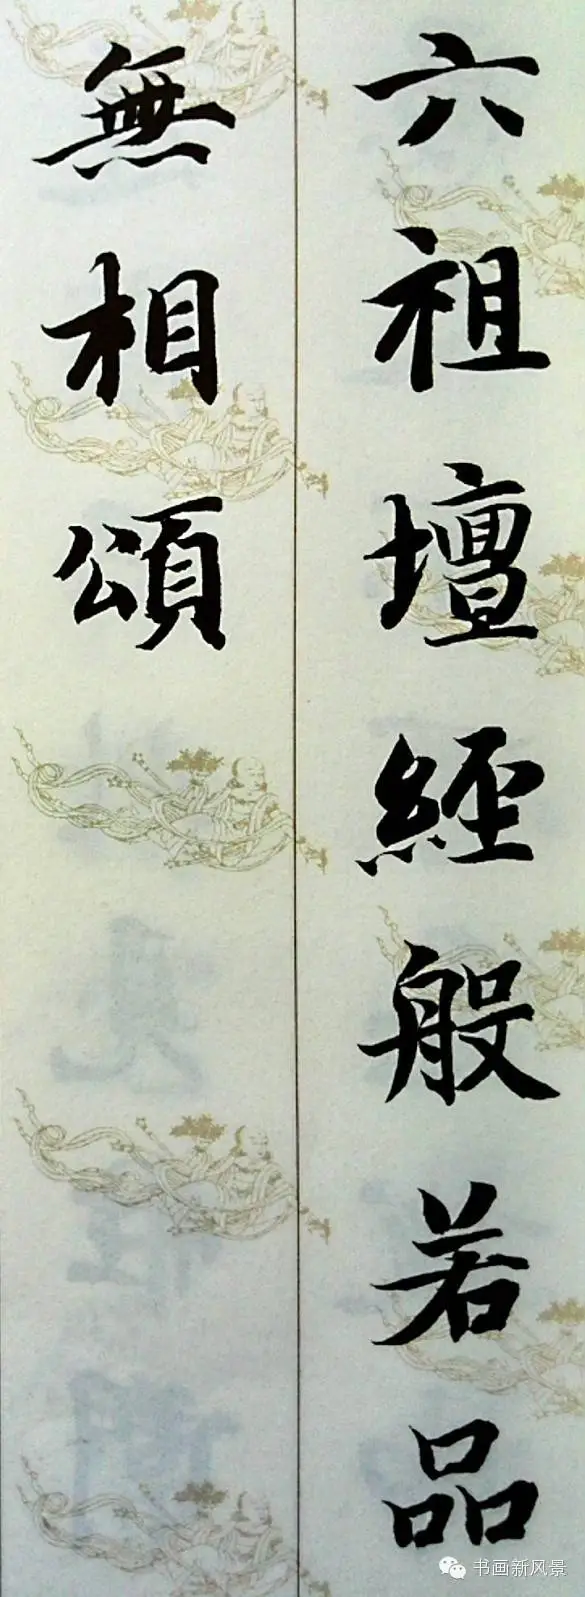 六祖壇經般若品
無相頌
书画新风景